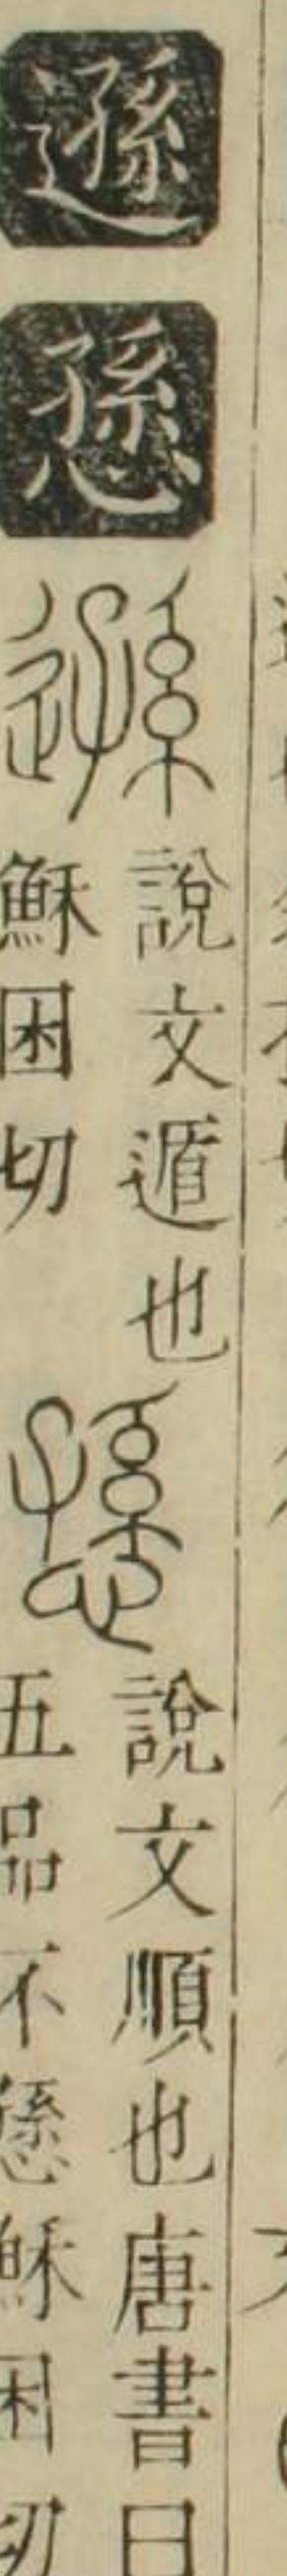 遜
愻
遜
說文遁也
穌困切
愻
說文順也唐書曰
五品不愻穌困切